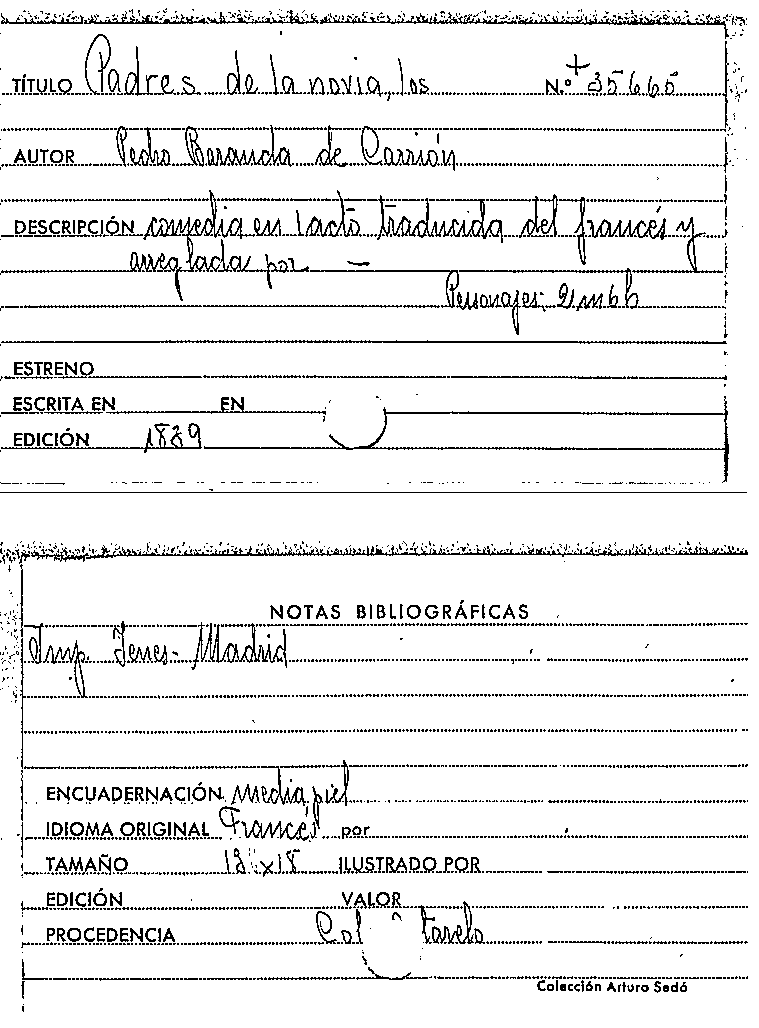 TÍTULO Padres de la novia, los N.º + 35665
AUTOR Pedro Baranda de Carrión
DESCRIPCIÓN comedia en 1 acto traducida del francés y
arreglada por —
Personajes: 2 m 6 h
ESTRENO
ESCRITA EN EN
EDICIÓN 1839
NOTAS BIBLIOGRÁFICAS
Imp. Yenes - Madrid
ENCUADERNACIÓN media piel
IDIOMA ORIGINAL Francés por
TAMAÑO ILUSTRADO POR
EDICIÓN VALOR
PROCEDENCIA Col tarelo
Colección Arturo Sedó